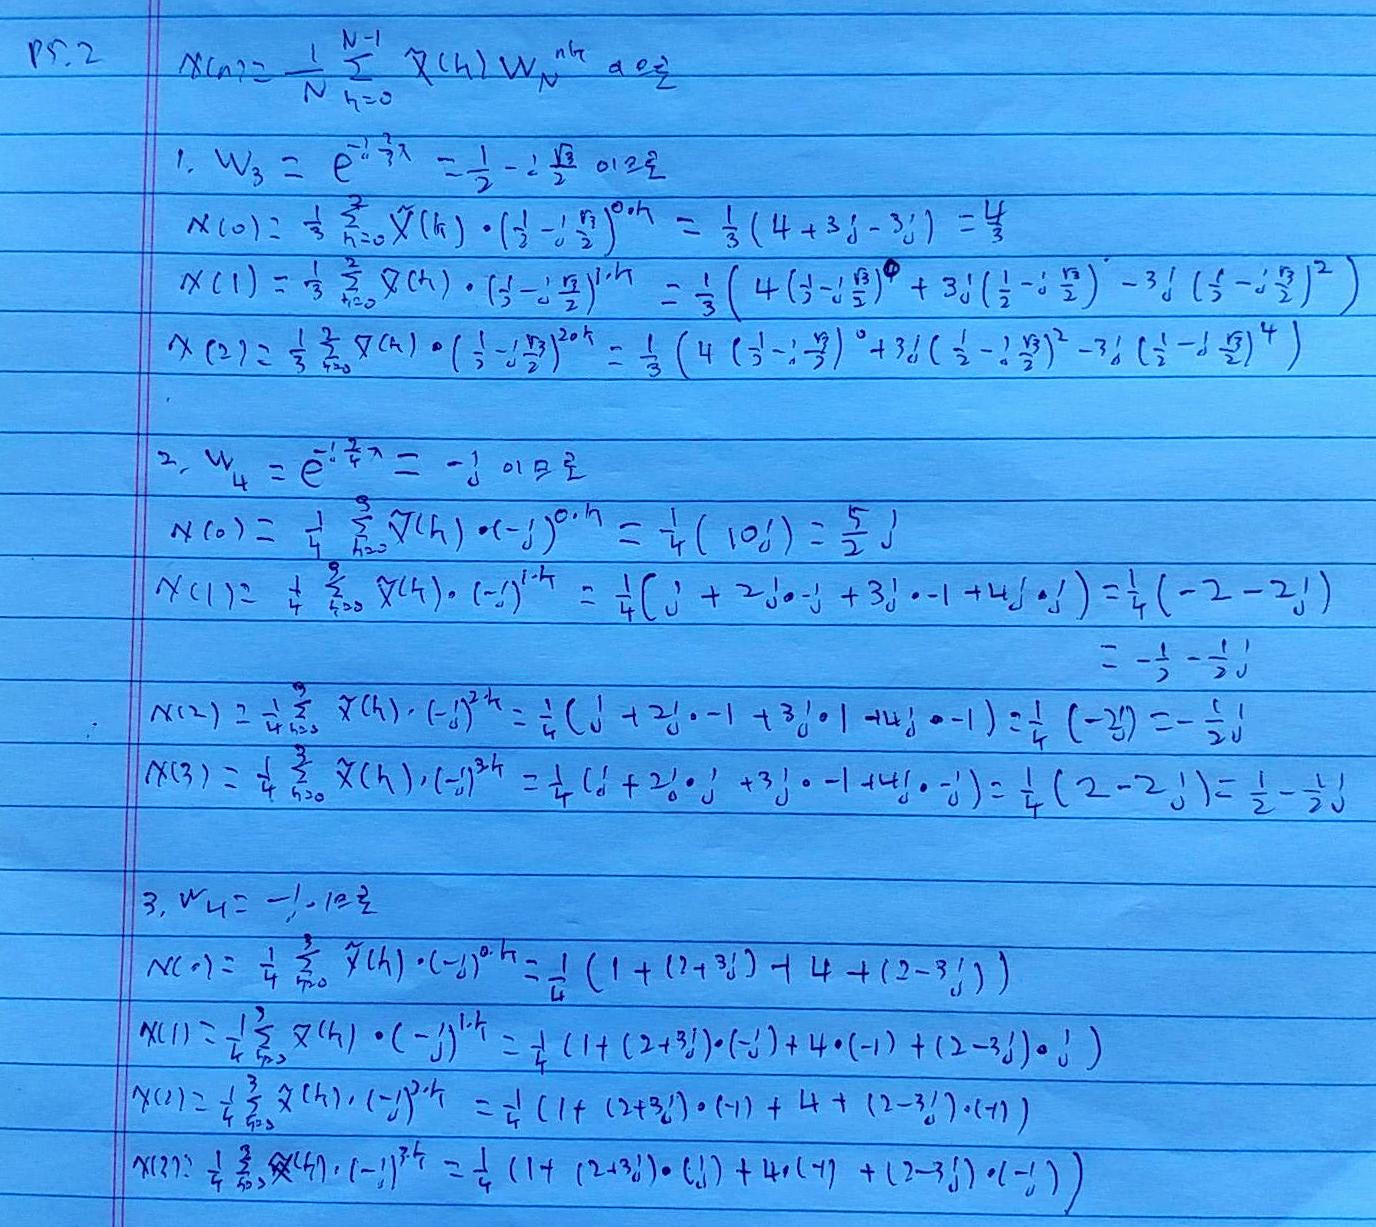 P5.2 x(n) = 1/N Σ_{k=0}^{N-1} X̃(k) W_N^{nk} 으로
1. W_3 = e^{-j 2/3 π} = 1/2 - j √3/2 이므로
x(0) = 1/3 Σ_{k=0}^{2} X̃(k) · (1/2 - j √3/2)^{0·k} = 1/3 (4 + 3j - 3j) = 4/3
x(1) = 1/3 Σ_{k=0}^{2} X̃(k) · (1/2 - j √3/2)^{1·k} = 1/3 ( 4 (1/2 - j √3/2)^0 + 3j (1/2 - j √3/2)^1 - 3j (1/2 - j √3/2)^2 )
x(2) = 1/3 Σ_{k=0}^{2} X̃(k) · (1/2 - j √3/2)^{2·k} = 1/3 ( 4 (1/2 - j √3/2)^0 + 3j (1/2 - j √3/2)^2 - 3j (1/2 - j √3/2)^4 )
2. W_4 = e^{-j 2/4 π} = -j 이므로
x(0) = 1/4 Σ_{k=0}^{3} X̃(k) · (-j)^{0·k} = 1/4 (10j) = 5/2 j
x(1) = 1/4 Σ_{k=0}^{3} X̃(k) · (-j)^{1·k} = 1/4 (j + 2j·-j + 3j·-1 + 4j·j) = 1/4 (-2 - 2j)
= -1/2 - 1/2 j
x(2) = 1/4 Σ_{k=0}^{3} X̃(k) · (-j)^{2·k} = 1/4 (j + 2j·-1 + 3j·1 + 4j·-1) = 1/4 (-2j) = -1/2 j
x(3) = 1/4 Σ_{k=0}^{3} X̃(k) · (-j)^{3·k} = 1/4 (j + 2j·j + 3j·-1 + 4j·-j) = 1/4 (2 - 2j) = 1/2 - 1/2 j
3. W_4 = -j 이므로
x(0) = 1/4 Σ_{k=0}^{3} X̃(k) · (-j)^{0·k} = 1/4 (1 + (2+3j) + 4 + (2-3j))
x(1) = 1/4 Σ_{k=0}^{3} X̃(k) · (-j)^{1·k} = 1/4 (1 + (2+3j)·(-j) + 4·(-1) + (2-3j)·j)
x(2) = 1/4 Σ_{k=0}^{3} X̃(k) · (-j)^{2·k} = 1/4 (1 + (2+3j)·(-1) + 4 + (2-3j)·(-1))
x(3) = 1/4 Σ_{k=0}^{3} X̃(k) · (-j)^{3·k} = 1/4 (1 + (2+3j)·(j) + 4·(-1) + (2-3j)·(-j))